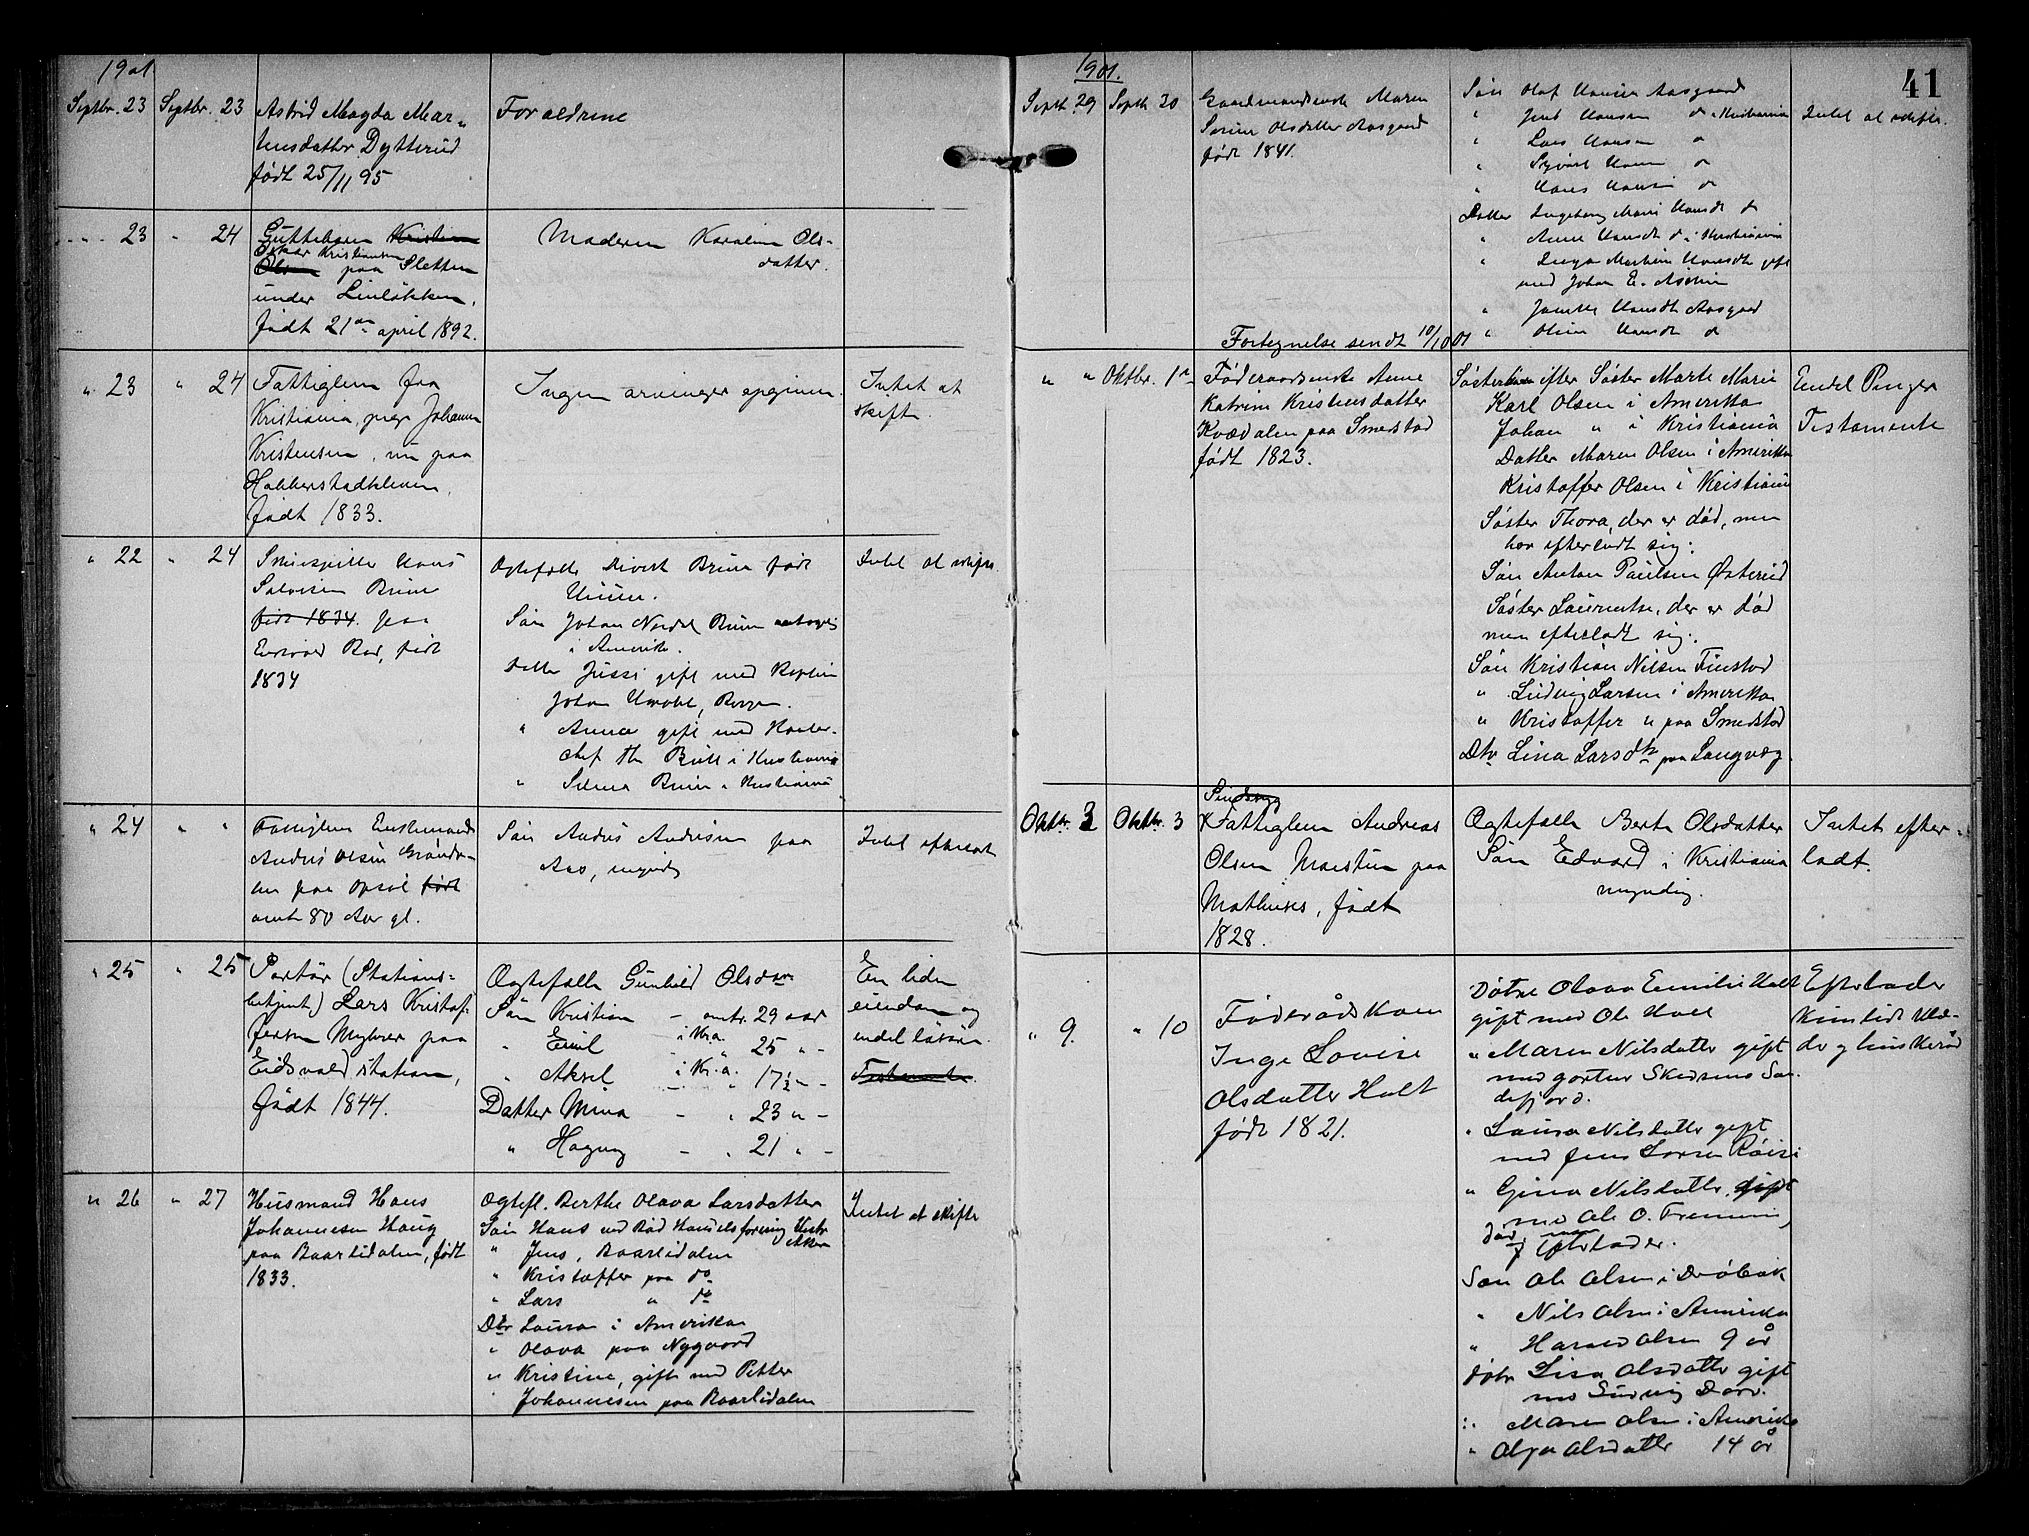 1901
Septbr. 23 Septbr. 23 Astrid Magda Mar-
tinsdatter Dytterud
født 25/11 95
Foraldrene
23 " 24 Guttebarn Kristian
Oskar Kristiansen
Olsen paa Sletten
under Linløkken,
født 21de april 1892.
Moderen Karoline Ols-
datter.
" 23 " 24 Fattiglem fra
Kristiania, pige Johanna
Kristensen, nu paa
Habberstadkleven,
født 1833.
Ingen arvinger opgiven.
Intet at
skifte.
" 22 " 24 Hans
Brun
født 1834. paa
Bad, født
1834
Ægtefælle Brun født
Søn Johan Brun
i Amerika.
gift med
Johan Bergen.
" Anna gift med
chef Th i Kristiania
" Brun i Kristiania
Intet at skifte.
" 24 " " Enkemand
Andreas Olsen
paa Opsal født
omtr 80 Aar gl.
Søn Andreas Andersen paa
Aas, myndig
Intet efterladt
" 25 " 25 Portør (Stations-
betjent) Lars Kristof-
fersen Myhrer paa
Eidsvold station,
født 1844.
Ægtefælle Gunhild Olsdatr
Søn Kristian - omtr. 29 aar
" Emil - i Kra. " 25 " -
" Aksel - i Kr.a. " 17½ " -
Datter Mina - " 23 " -
" Hagny - " 21 " -
En liden
eiendom og
endel løsøre.
Testamente.
" 26 " 27 Husmand Hans
Johannesen Haug
paa Baarlidalen, født
1833.
Ægtefl. Berthe Olava Larsdatter
Søn Hans ved Bød Handelsforening Vestr
Aker
" Jens, Baarlidalen
" Kristoffer paa do
" Lars " do
Dtr Laura i Amerika
" Olava paa Nygaard
" Kristine, gift med Petter
Johannesen paa Baarlidalen
41
1901.
Septb. 29 Septb. 30 Gaardmandsenke Maren
Serine Olsdatter Aasgaard
født 1841.
Fortegnelse sendt 10/10 01
Søn Olaf Hansen Aasgaard
" Hansen do i Kristiania
" Lars Hansen do
" Sigvart Hansen do
" Hans Hansen do
Datter Ingeborg Marie Hansdt do
" Anne Hansdt do i Kristiania
" Inga Mathea Hansdt gift
med Johan E.
" Hansdt Aasgaard
" Oline Hansdt do
Intet at skifte.
" " Oktbr. 1ste Føderaadsenke Anne
Katrine Kristensdatter
Kvædalen paa Smedstad
født 1823.
Søsterbørn efter Søster Marte Marie
Karl Olsen i Amerika
Johan " i Kristiania
Datter Maren Olsen i Amerika
Kristoffer Olsen i Kristiania
Søster Thora, der er død, men
har efterladt sig:
Søn Anton Paulsen Østerud
Søster Laurentse, der er død
men efterladt sig:
Søn Kristian Nilsen Finstad
" Ludvig Larsen i Amerika
" Kristoffer " paa Smedstad
Dtr Lina Larsdtr paa Langvæg
Endel Penger
Testamente
Oktbr. 3 Oktbr. 3 Sindssyg
Fattiglem Andreas
Olsen paa
født
1828.
Ægtefælle Berte Olsdatter
Søn Edvard i Kristiania
myndig.
Intet efter-
ladt.
" 9. " 10 Føderådskone
Inge Lovise
Olsdatter Holt
født 1821.
Døtre Olava Emilie Holt
gift med Ole Holt
" Maren Nilsdatter gift
med gartner San-
defjord.
" Laura Nilsdatter gift
med Jens Larsen
" Gina Nilsdatter, gift
med Ole O.
død, men
efterlader.
Søn Ole Olsen i Drøbak
" Nils Olsen i Amerika
" Harald Olsen 9 år
Døtr Lisa Olsdatter gift
med Ludvig
" Maren Olsen i Amerika
" Olga Olsdatter 14 år
Efterlader
kun lidt klæ-
der og